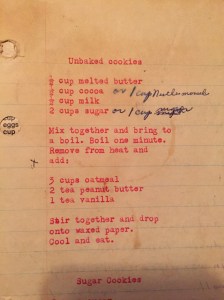 Unbaked cookies
½ cup melted butter
½ cup cocoa or 1 cup
½ cup milk
2 cups sugar or 1 cup
Mix together and bring to
a boil. Boil one minute.
Remove from heat and
add;
eggs
cup
3 cups oatmeal
2 tea peanut butter
1 tea vanilla
Stir together and drop
onto waxed paper.
Cool and eat.
Sugar Cookies